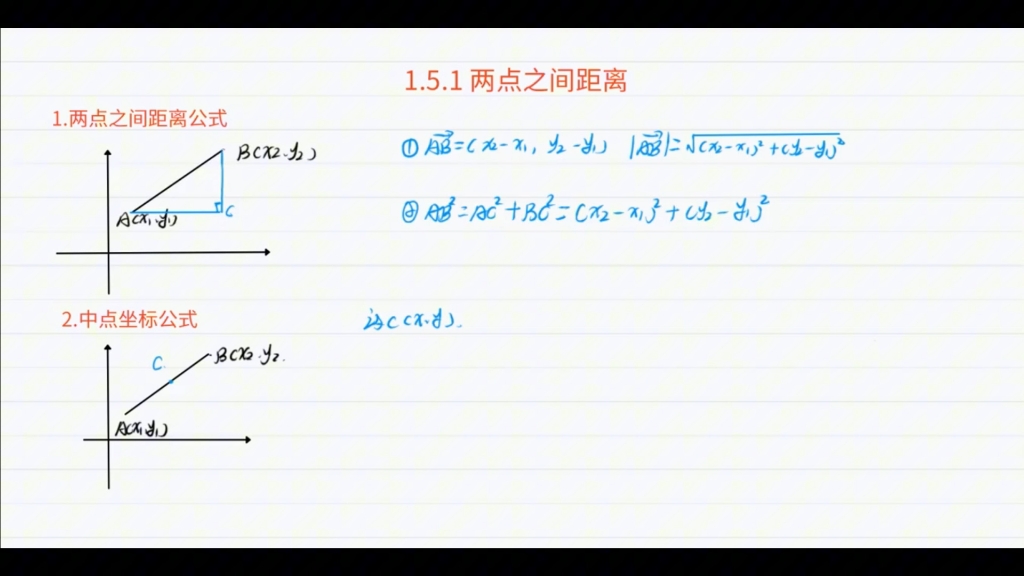 1.5.1 两点之间距离
1.两点之间距离公式
B(x2.y2)
A(x1.y1)
C
① AB⃗=(x2-x1, y2-y1) |AB⃗|=√(x2-x1)²+(y2-y1)²
② AB²=AC²+BC²=(x2-x1)²+(y2-y1)²
2.中点坐标公式
设C(x.y).
C.
B(x2.y2.
A(x1.y1)